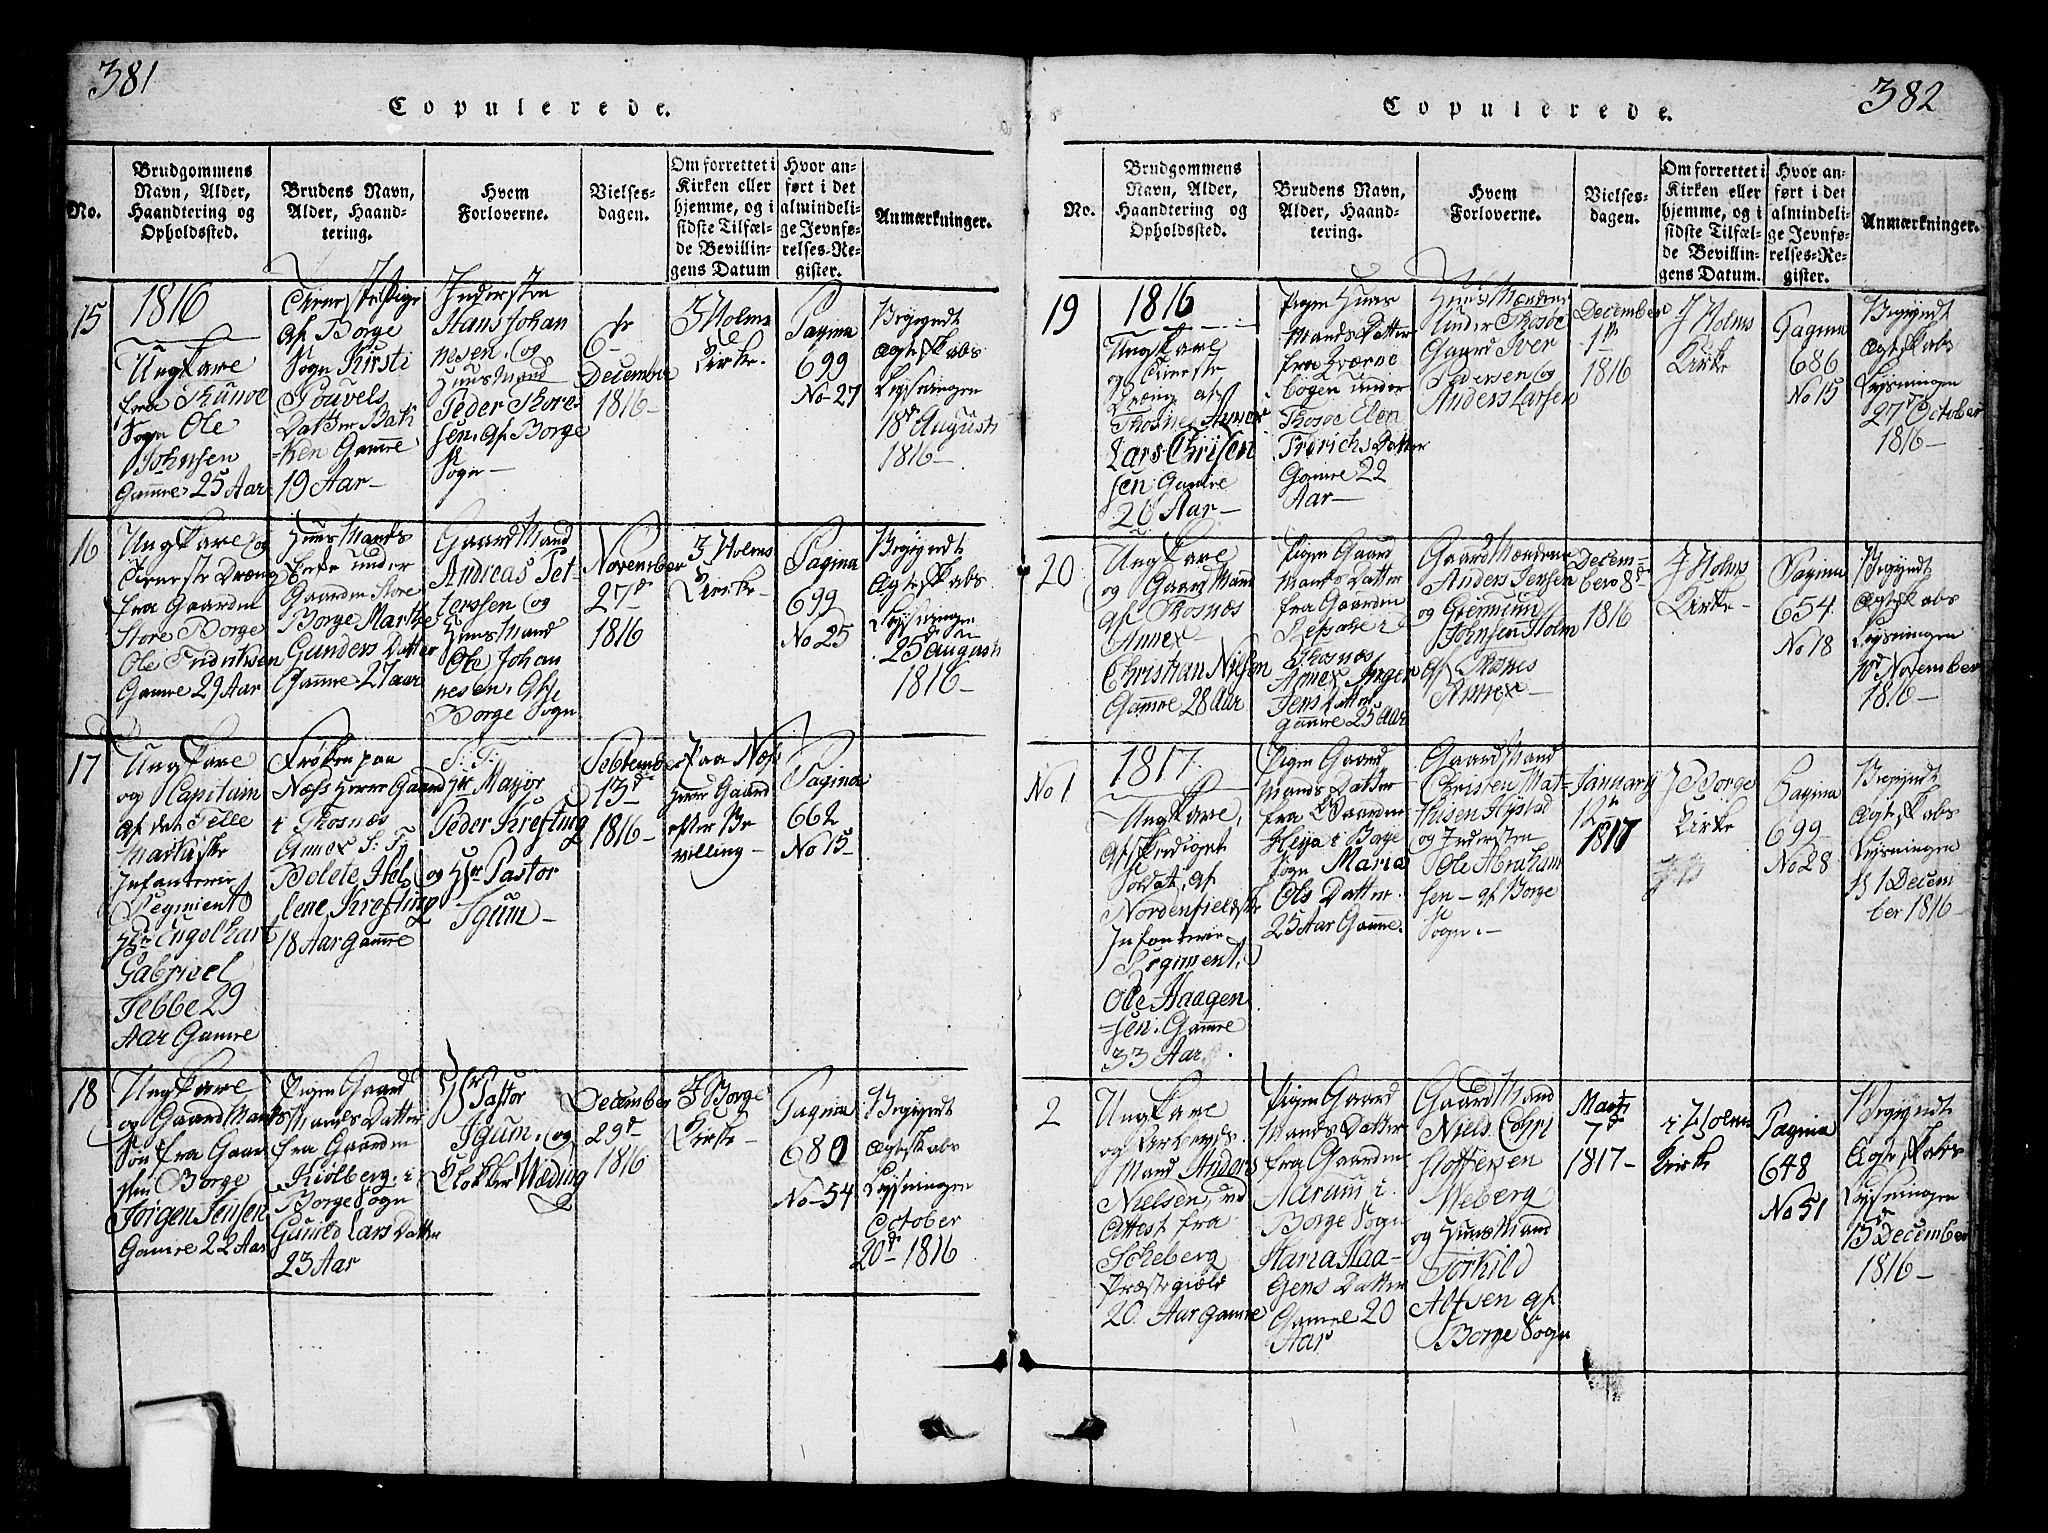 381
Copulerede.
No.
Brudgommens
Navn, Alder,
Haandtering og
Opholdssted.
Brudens Navn,
Alder, Haand-
tering.
Hvem
Forloverne.
Vielses-
dagen.
Om forrettet i
Kirken eller
hjemme, og i
sidste Tilfæl-
de Bevillin-
gens Datum
Hvor an-
ført i det
almindeli-
ge Jevnfø-
relses-Re-
gister.
Anmærkninger.
15
1816
Ungkare
fra
Sogn Ole
Johnsen
Gamre 25 Aar
af Borge
Sogn Kirsti
Povels
Datter
Gamre
19 Aar
Indersten
Hans Johan
nesen, og
Huusmand
Peder Thore-
sen. af Borge
Sogn
6
December
1816
I Holms
Kirke.
Pagina
699
No 27
Begyndt
Ægteskabs
Lysningen
18d Augusti
1816
16
Ungkare og
Tieneste Dræng
fra Gaarden
Store Borge
Ole Fridriksen
Gamre 29 Aar
Huusmands
under
Gaarden Store
Borge Marthe
Gunders Datter
Gamre 27 aar
Gaardmand
Andreas Pet-
terssen og
Huusmand
Ole Johan
nesen. af
Borge Sogn
November
27d
1816
I Holms
Kirke
Pagina
699
No 25
Begyndt
Ægteskabs
Lysningen
25 Augusti
1816
17
Ungkare
og Capitain
af det
Infanterie
Regiment
Hr Engelhart
Gabrieel
Tebbe 29
Aar Gamre
Frøken paa
Næss Herre Gaard
i Thosnæs
Annex S: T:
Bolete Hel
lene Krefting
18 Aar Gamre
S: T:
Hr Mayor
Peder Krefting
og Hr Pastor
Igum
Septembe
13d
1816
Paa Næss
Herre Gaard
efter Be
villing
Pagina
662
No 15
18
Ungkare
og Gaardmands
Søn fra Gaar
den Borge
Jørgen Jensen
Gamre 22 Aar
Pigen Gaard
Mands Datter
fra Gaarden
Kiølberg i
Borge Sogn
Gunild Lars Datter
23 Aar
Hr Pastor
Igum, og
Klokker Weding
December
29d
1816
I Borge
Kirke
Pagina
680
No 54
Begyndt
Ægteskabs
Lysningen
October
20d 1816
382
Copulerede.
No.
Brudgommens
Navn, Alder,
Haandtering og
Opholdssted.
Brudens Navn,
Alder, Haand-
tering.
Hvem
Forloverne.
Vielses-
dagen.
Om forrettet i
Kirken eller
hjemme, og i
sidste Tilfæl-
de Bevillin-
gens Datum.
Hvor an-
ført i det
almindeli-
ge Jevnfø-
relses-Re-
gister.
Anmærkninger.
19
1816
Ungkare
og Tieneste
Dræng af
Thosnes Annex
Lars Christen
sen Gamre
26 Aar
Pigen Huus
Mands Datter
fra
under
Thosøe Elen
Fredrichs Datter
Gamre 22
Aar
Huusmændene
under Thosøe
Gaard Iver
Pedersen og
Anders Larsen
December
1te
1816
I Holms
Kirke
Pagina
686
No 15
Begyndt
Ægteskabs
Lysningen
27d October
1816
20
Ungkare
og Gaard Mand
af Thosnæs
Annex
Christian Nilsen
Gamre 28 Aar
Pigen Gaard
mands Datter
fra Gaarden
i
Thosnæs
Annex Inger
Jens Datter
gamre 25 Aar
Gaardmændene
Anders Jensen
og
Johnsen Holm
af Thosnes
Annex
Decem-
ber 8d
1816
I Holms
Kirke
Pagina
654
No 18
Begyndt
Ægteskabs
Lysningen
10d November
1816
No 1
1817
Ungkare,
afskediget
Soldat, af
Nordenfieldske
Infanterie
Regiment,
Ole Haagen
sen. Gamre
33 Aar.
Pigen Gaard
Mands Datter
fra Gaarden
i Borge
Sogn Maria
Ols Datter
25 Aar Gamre.
Gaardmand
Christen Mat-
thisen
og Indersten
Ole Abraham
sen af Borge
Sogn.
January
12te
1817
I Borge
Kirke
Pagina
699
No 28
Begyndt
Ægteskabs
Lysningen
d 1 Decem
ber 1816
2
Ungkare
og
Mand Anders
Nielsen, ved
Attest fra
Præstegield
20 Aar gamre
Pigen Gaard
Mands Datter
fra Gaarden
Aarum i
Borge Sogn
Maria Haa-
gens Datter
Gamre 20
Aar
Gaardmand
Niels Chri
stoffersen
Weberg
og Huusmand
Torkild
Alfsen af
Borge Sogn
Marti
7d
1817
i Holms
Kirke
Pagina
648
No 51
Begyndt
Ægteskabs
Lysningen
15d December
1816